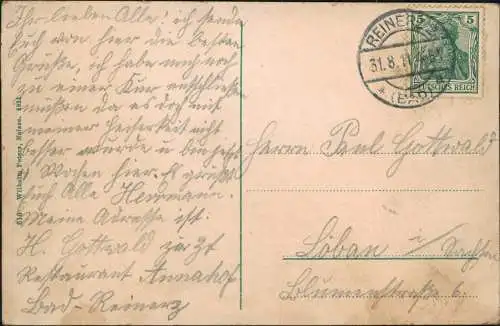 Ihr lieben Alle! ich sende
Euch von hier die besten
Grüße, ich habe mich noch
zu einer Kur entschließen
müßen da es doch mit
meiner Heiserkeit nicht
besser wurde u bin jetzt
Wochen hier. Es grüßt
Euch Alle Herrmann.
Meine Adresse ist:
H. Gottwald zur Zt
Restaurant Annahof
Bad-Reinerz
Wilhelm
REINERZ
31.8.11
(BAD)
5 5
DEUTSCHES REICH
Herrn Paul Gottwald
Löbau i/ Sachsen
Blumenstraße 6.